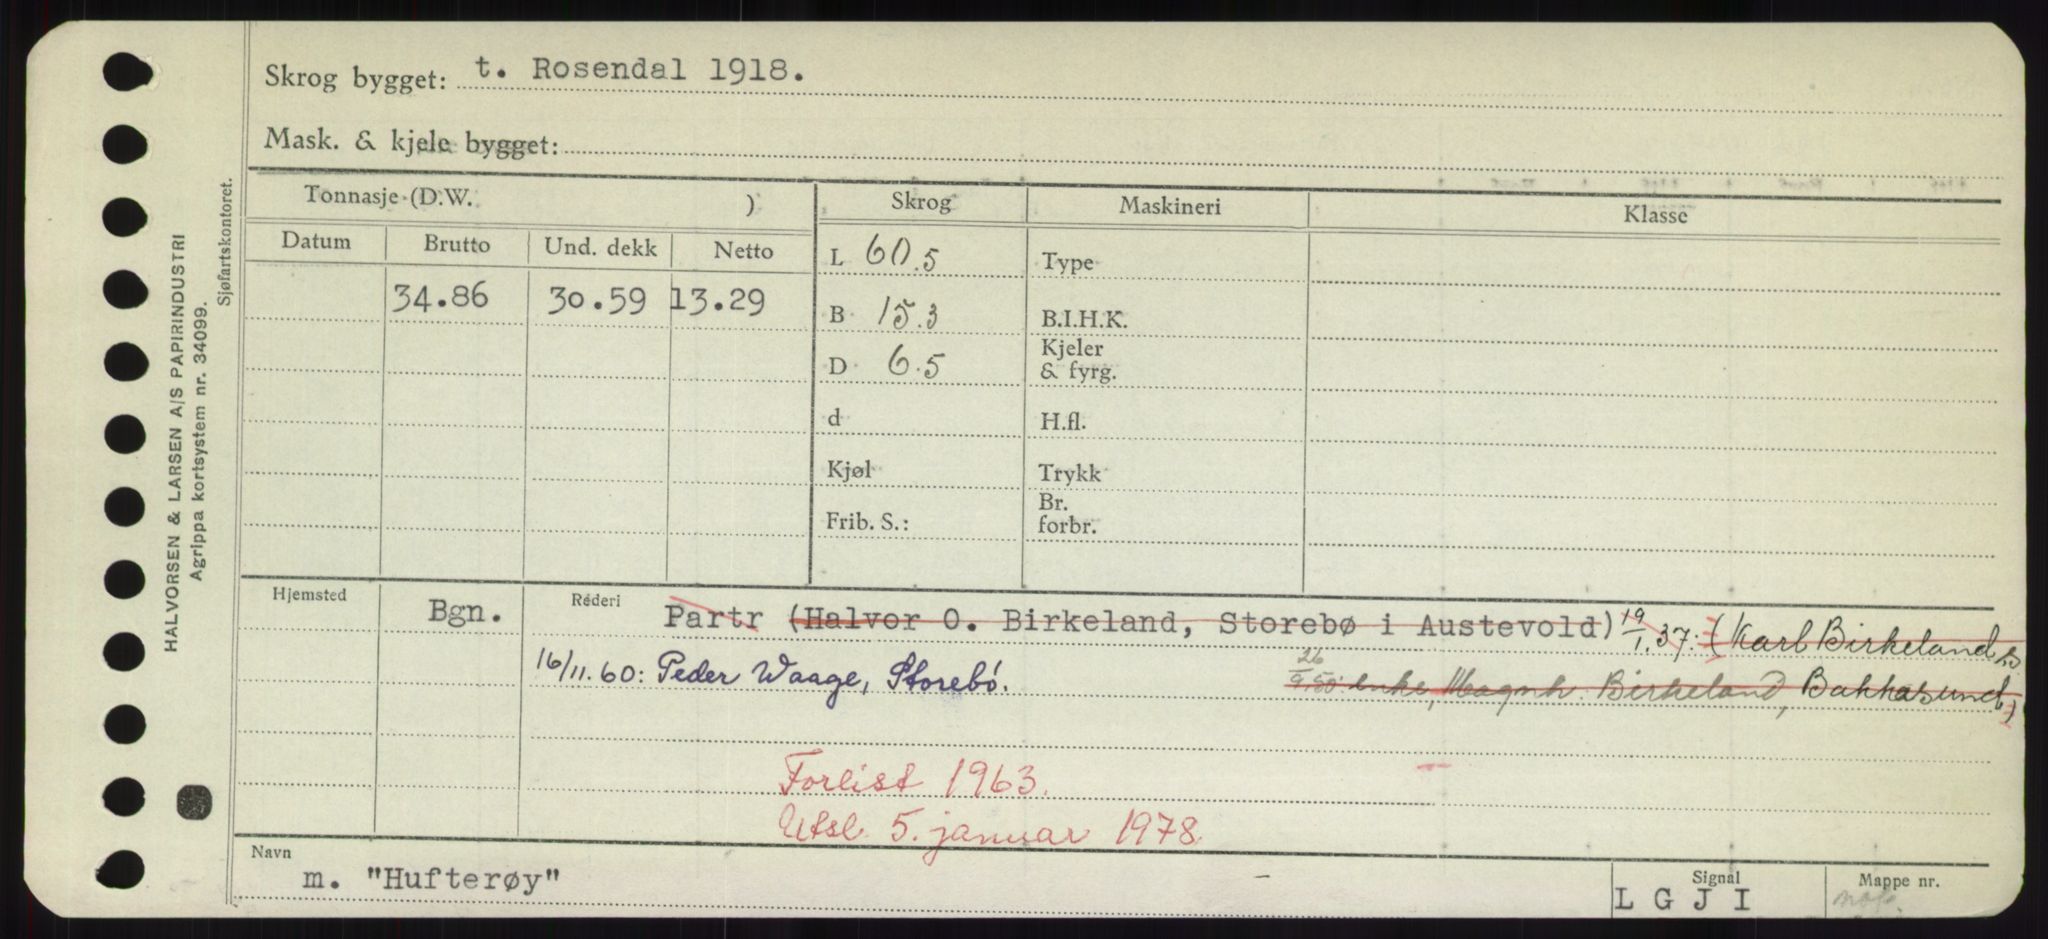 Skrog bygget: t. Rosendal 1918.
Mask. & kjele bygget:
Tonnasje (D.W. ) Skrog Maskineri Klasse
Datum Brutto Und. dekk Netto
L 60.5 Type
34.86 30.59 13.29
B 15.3 B.I.H.K.
D 6.5 Kjeler & fyrg.
d H.fl.
Kjøl Trykk
Frib. S.: Br. forbr.
Hjemsted Bgn. Rederi Partr (Halvor O. Birkeland, Storebø i Austevold) 19/1.37: (Karl Birkelands
16/11.60: Peder Waage, Storebø. 26/9.50: enke, Magnh. Birkeland, Bakkasund)
Forlist 1963.
Utsl. 5. januar 1978
Navn m. "Hufterøy" Signal LGJI Mappe nr.
HALVORSEN & LARSEN A/S PAPIRINDUSTRI
Agrippa kortsystem nr. 34099.
Sjøfartskontoret.